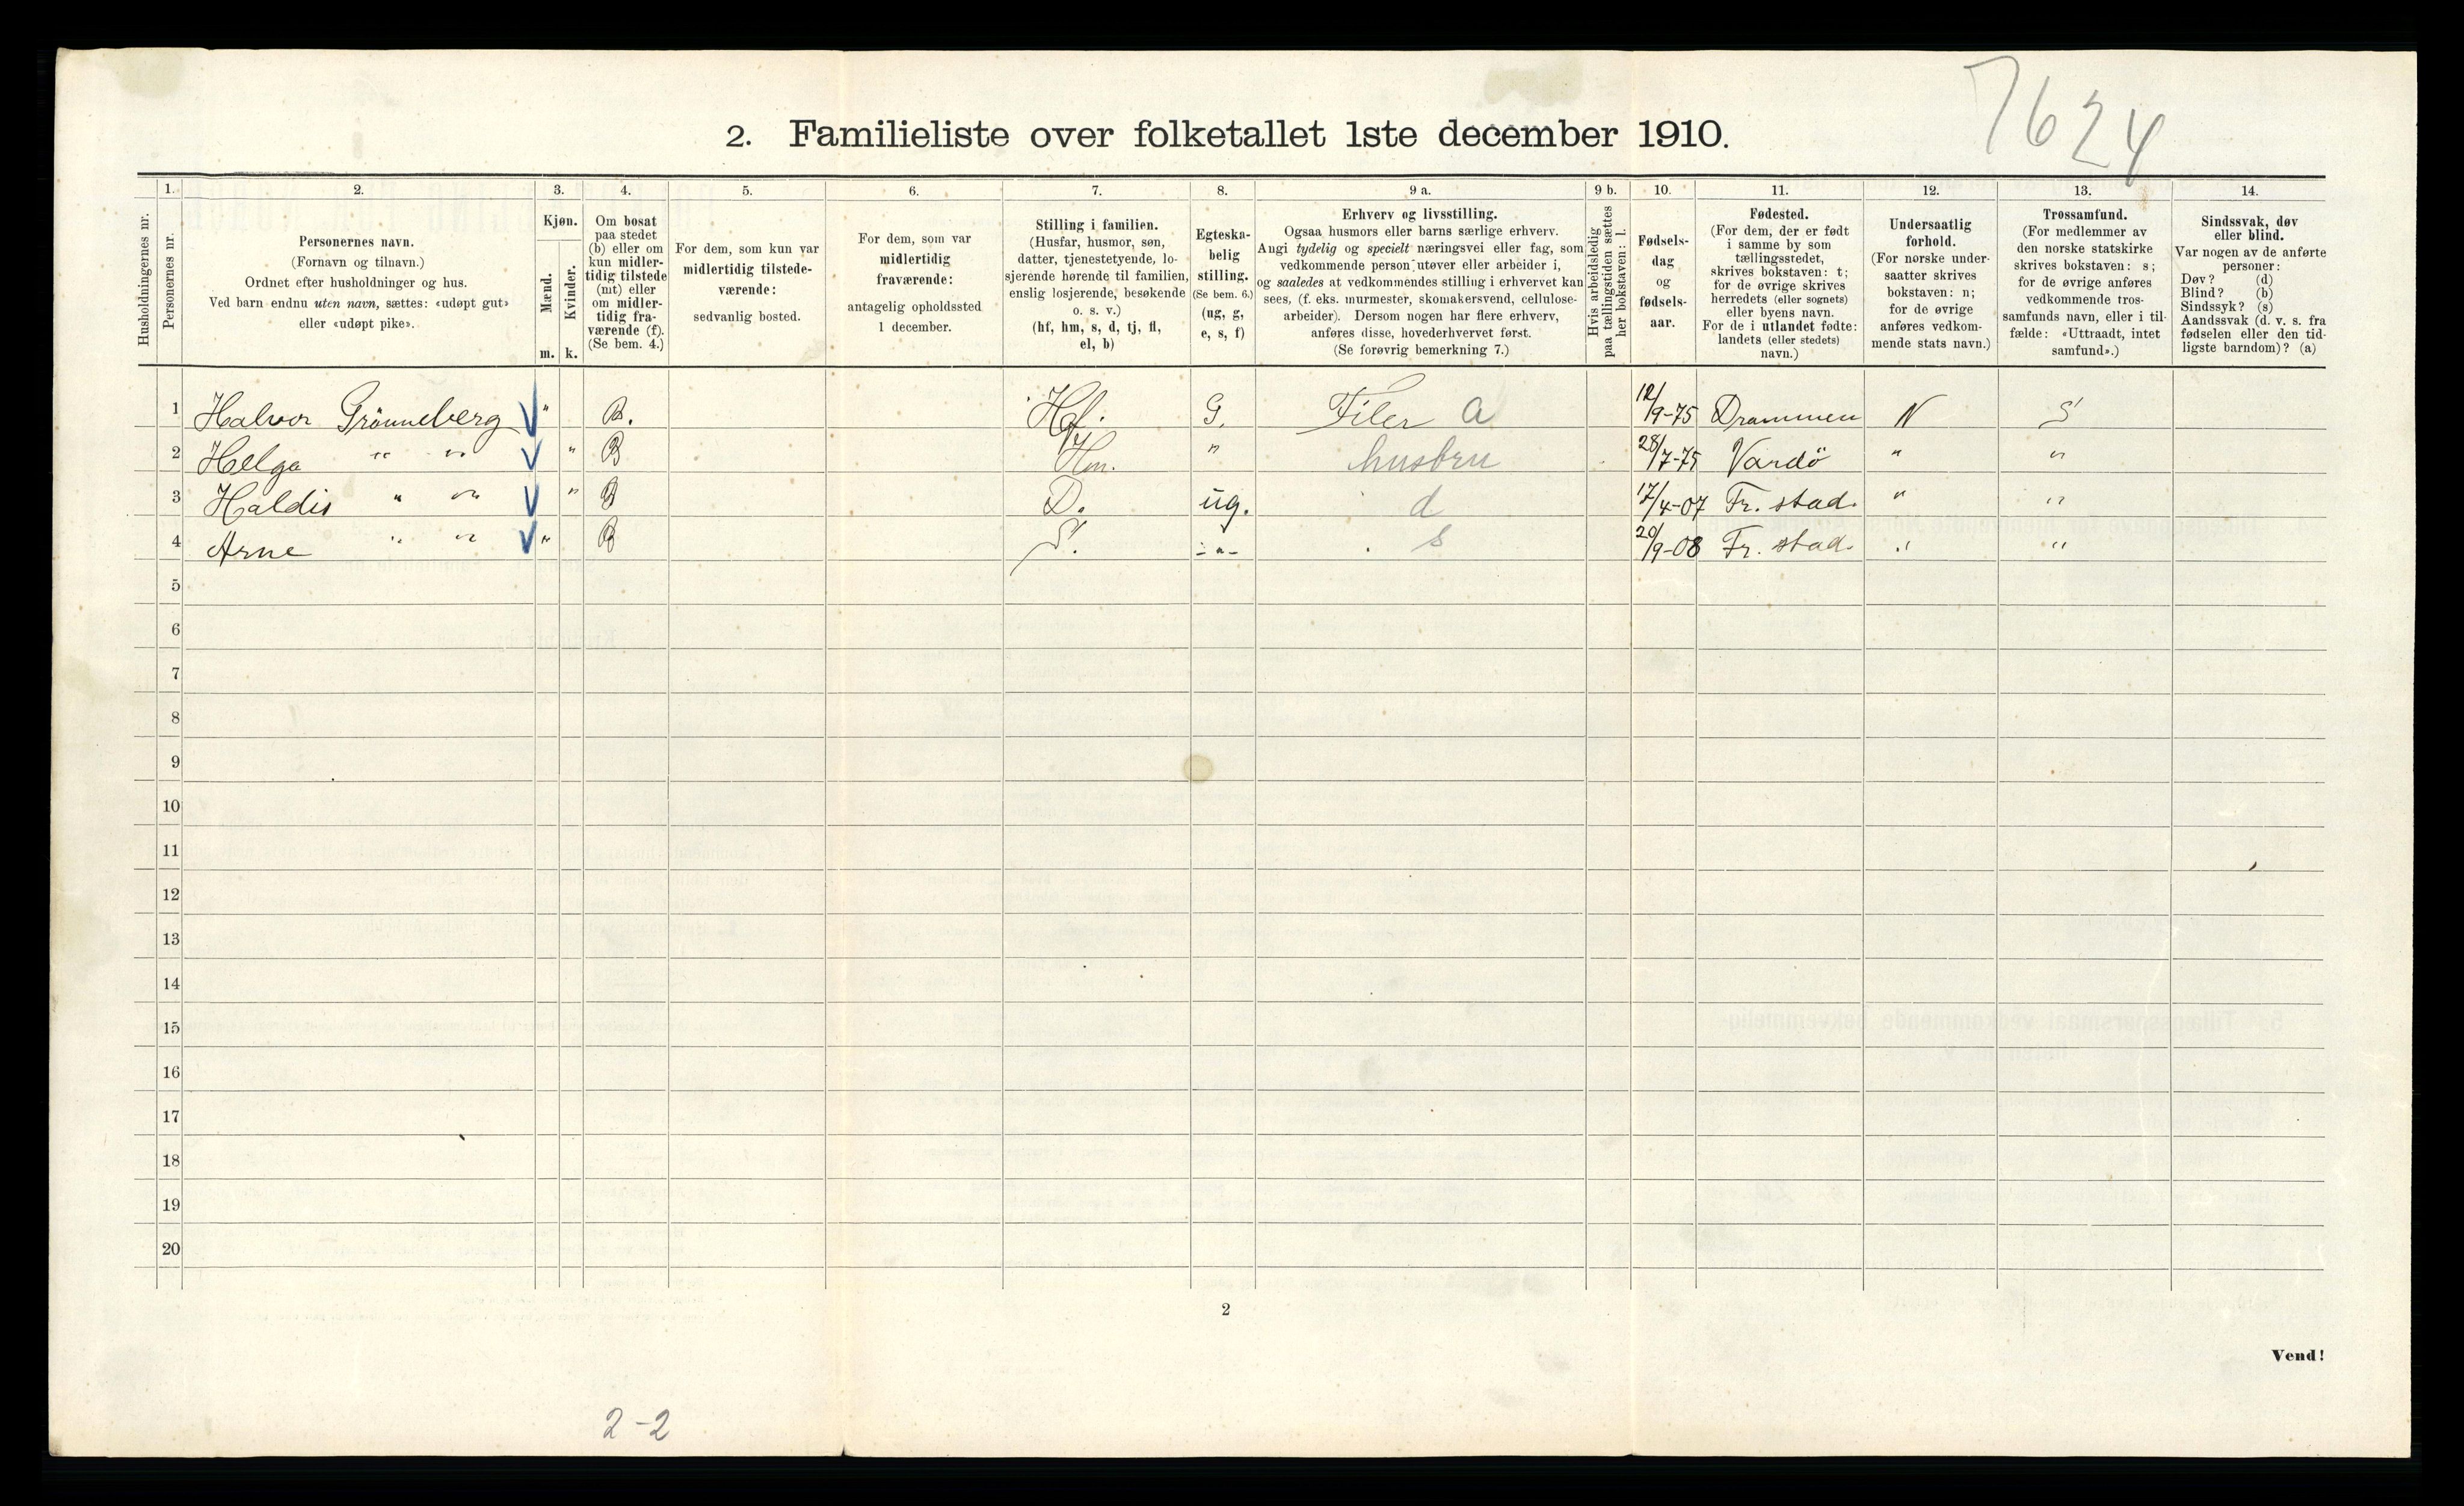 7624
2. Familieliste over folketallet 1ste december 1910.
1. 2. 3. 4. 5. 6. 7. 8. 9 a. 9 b. 10. 11. 12. 13. 14.
Husholdningernes nr.
Personernes nr.
Personernes navn.
(Fornavn og tilnavn.)
Ordnet efter husholdninger og hus.
Ved barn endnu uten navn, sættes: «udøpt gut»
eller «udøpt pike».
Kjøn.
Mænd.
Kvinder.
m. k.
Om bosat
paa stedet
(b) eller om
kun midler-
tidig tilstede
(mt) eller
om midler-
tidig fra-
værende (f).
(Se bem. 4.)
For dem, som kun var
midlertidig tilstede-
værende:
sedvanlig bosted.
For dem, som var
midlertidig
fraværende:
antagelig opholdssted
1 december.
Stilling i familien.
(Husfar, husmor, søn,
datter, tjenestetyende, lo-
sjerende hørende til familien,
enslig losjerende, besøkende
o. s. v.)
(hf, hm, s, d, tj, fl,
el, b)
Egteska-
belig
stilling.
(Se bem. 6.)
(ug, g,
e, s, f)
Erhverv og livsstilling.
Ogsaa husmors eller barns særlige erhverv.
Angi tydelig og specielt næringsvei eller fag, som
vedkommende person utøver eller arbeider i,
og saaledes at vedkommendes stilling i erhvervet kan
sees, (f. eks. murmester, skomakersvend, cellulose-
arbeider). Dersom nogen har flere erhverv,
anføres disse, hovederhvervet først.
(Se forøvrig bemerkning 7.)
Hvis arbeidsledig
paa tællingstiden sættes
her bokstaven: l.
Fødsels-
dag
og
fødsels-
aar.
Fødested.
(For dem, der er født
i samme by som
tællingsstedet,
skrives bokstaven: t;
for de øvrige skrives
herredets (eller sognets)
eller byens navn.
For de i utlandet fødte:
landets (eller stedets)
navn.)
Undersaatlig
forhold.
(For norske under-
saatter skrives
bokstaven: n;
for de øvrige
anføres vedkom-
mende stats navn.)
Trossamfund.
(For medlemmer av
den norske statskirke
skrives bokstaven: s;
for de øvrige anføres
vedkommende tros-
samfunds navn, eller i til-
fælde: «Uttraadt, intet
samfund».)
Sindssvak, døv
eller blind.
Var nogen av de anførte
personer:
Døv? (d)
Blind? (b)
Sindssyk? (s)
Aandssvak (d. v. s. fra
fødselen eller den tid-
ligste barndom)? (a)
1 Halvor Grönneberg V " B. Hf. G. Filer a 12/9-75 Drammen N S
2 Helga " " V " B Hm. " husbru 28/7-75 Vardö " "
3 Haldis " " V " B D. ug. d 17/4-07 Fr. stad. " "
4 Arne " " V " B S. -"- s 20/9-08 Fr. stad. " "
5
6
7
8
9
10
11
12
13
14
15
16
17
18
19
20
2
Vend!
2-2